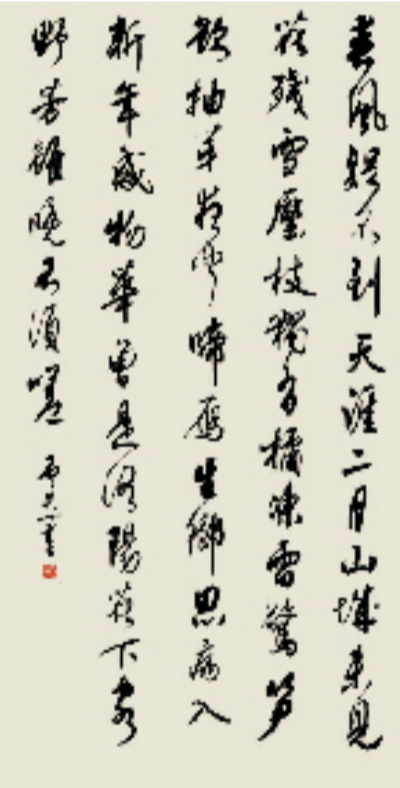 春風疑不到天涯二月山城未見
花殘雪壓枝猶有橘凍雷驚笋
欲抽芽夜聞啼雁生鄉思病入
新年感物華曾是洛陽花下客
野芳雖晚不須嗟